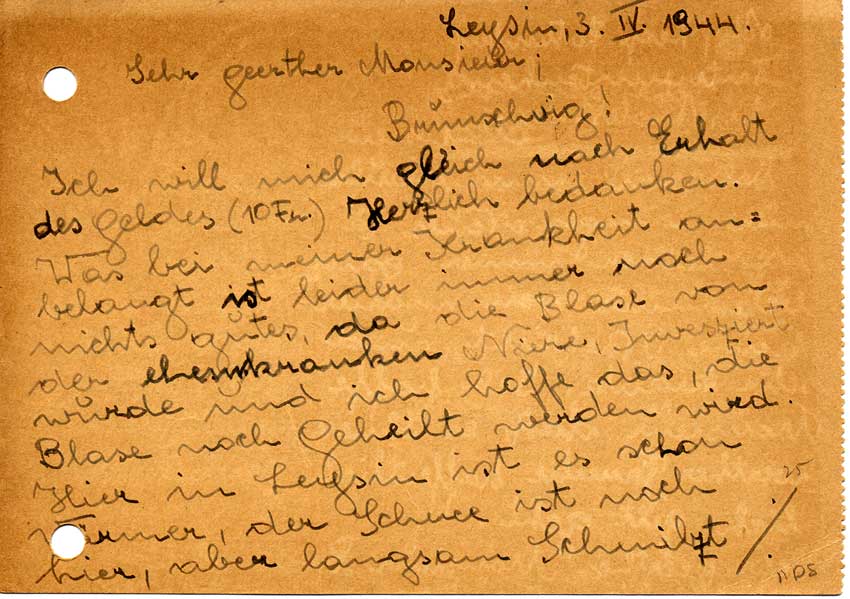 Leysin, 3. IV. 1944.
Sehr geerther Monsieur;
Brünschvig!
Ich will mich gleich nach Erhalt
des Geldes (10 Fr.) Herzlich bedanken.
Was bei meiner Krankheit an=
belangt ist leider immer noch
nichts gutes, da die Blase von
der ehemkranken Niere, Invesziert
würde und ich hoffe das, die
Blase noch Geheilt werden wird.
Hier in Leysin ist es schon
Wärmer, der Schnee ist noch
hier, aber langsam Schmilzt.
25